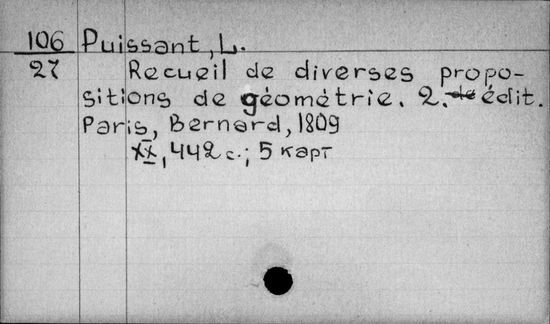 106 Puissant, L.
27 Recueil de diverses propo-
sitions de géométrie. 2. édit.
Paris, Bernard, 1809
XX, 442 с.; 5 карт